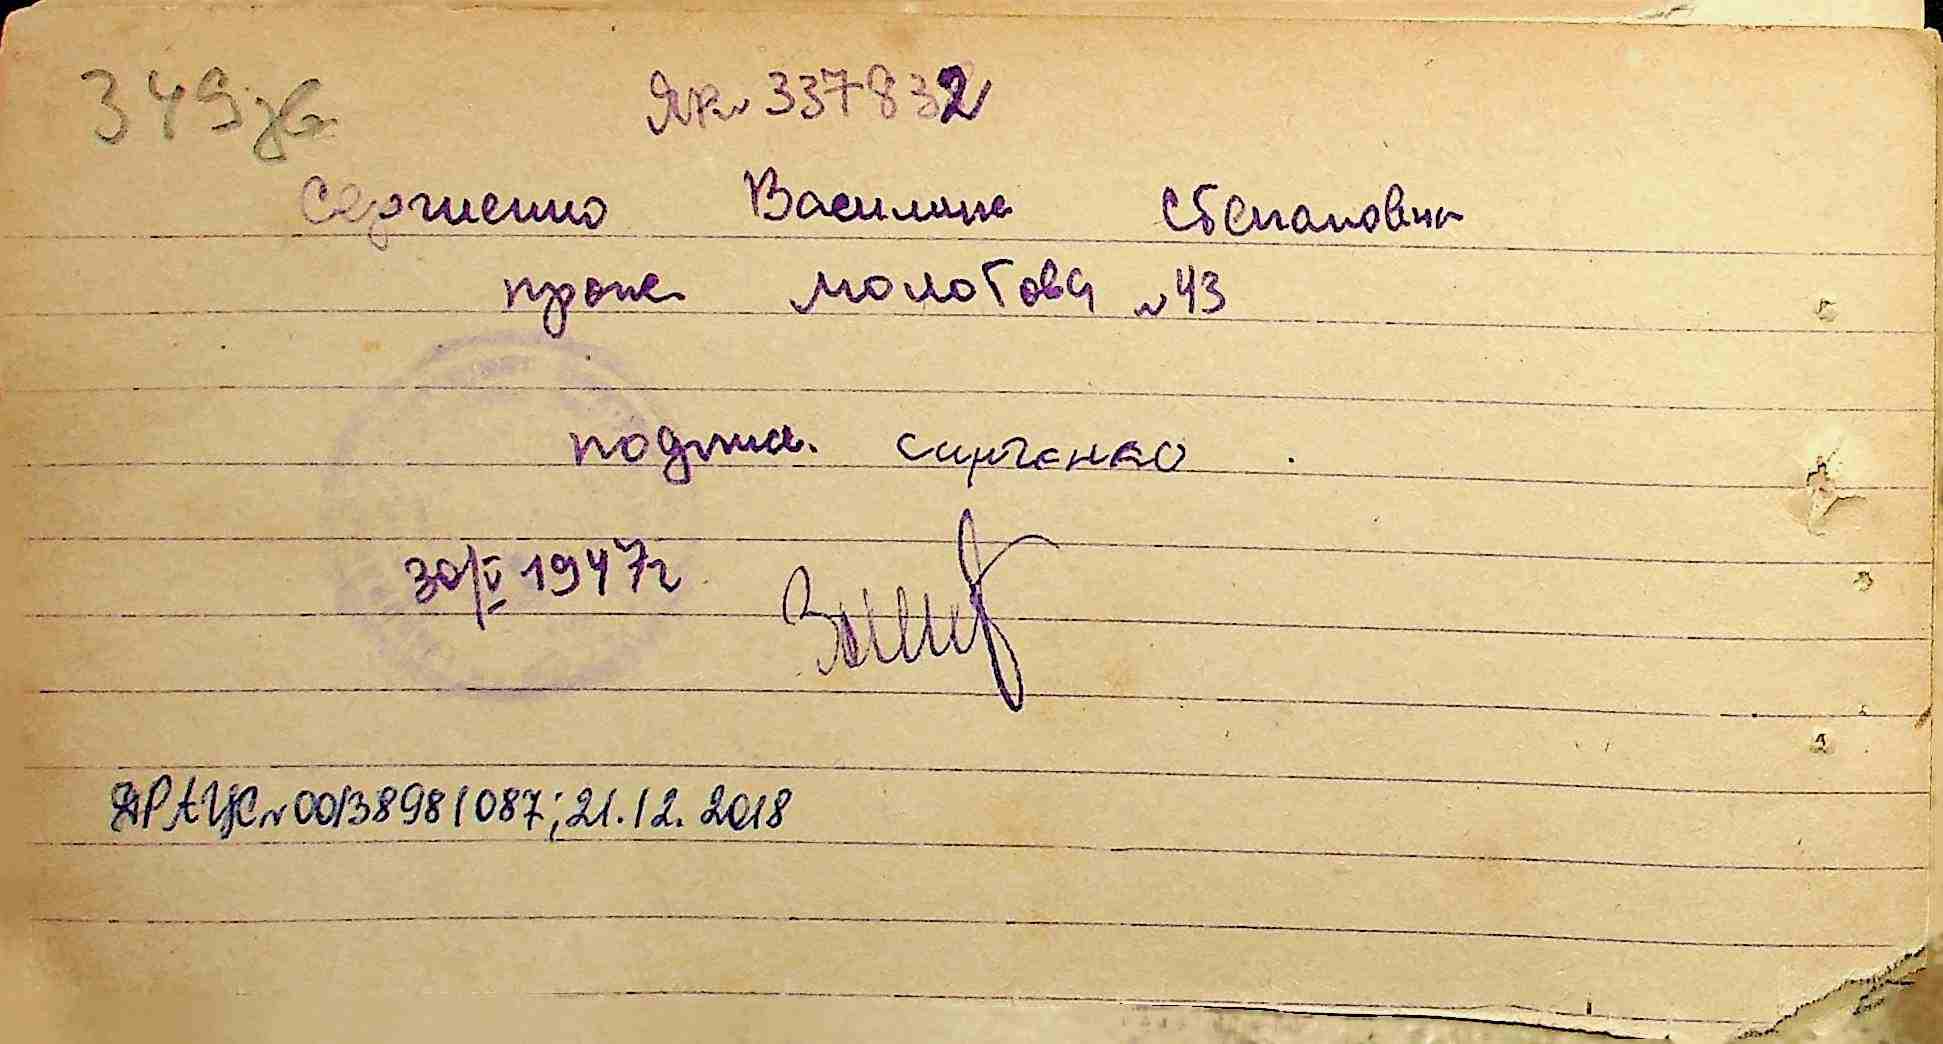 349 зв
Як № 337832
Сергиенко Василина Степановна
прож Молотова № 43
подпис. сирченко.
30/V 1947г
ДРАЦС № 00138981087; 21.12.2018